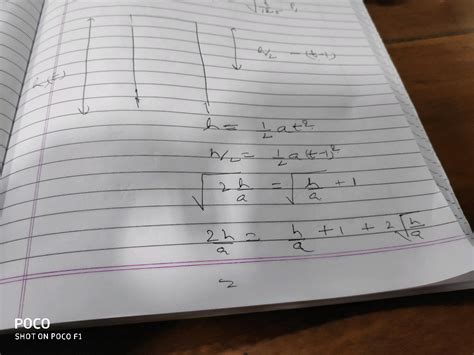 h/2 - (t-1)
h = 1/2 at²
h/2 = 1/2 a(t-1)²
√(2h/a) = √(h/a) + 1
2h/a = h/a + 1 + 2√(h/a)
POCO
SHOT ON POCO F1